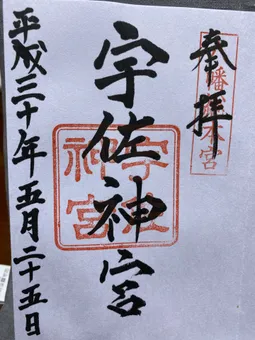 奉拝
八幡総本宮
宇佐神宮
宇佐
神宮
平成三十年五月二十五日